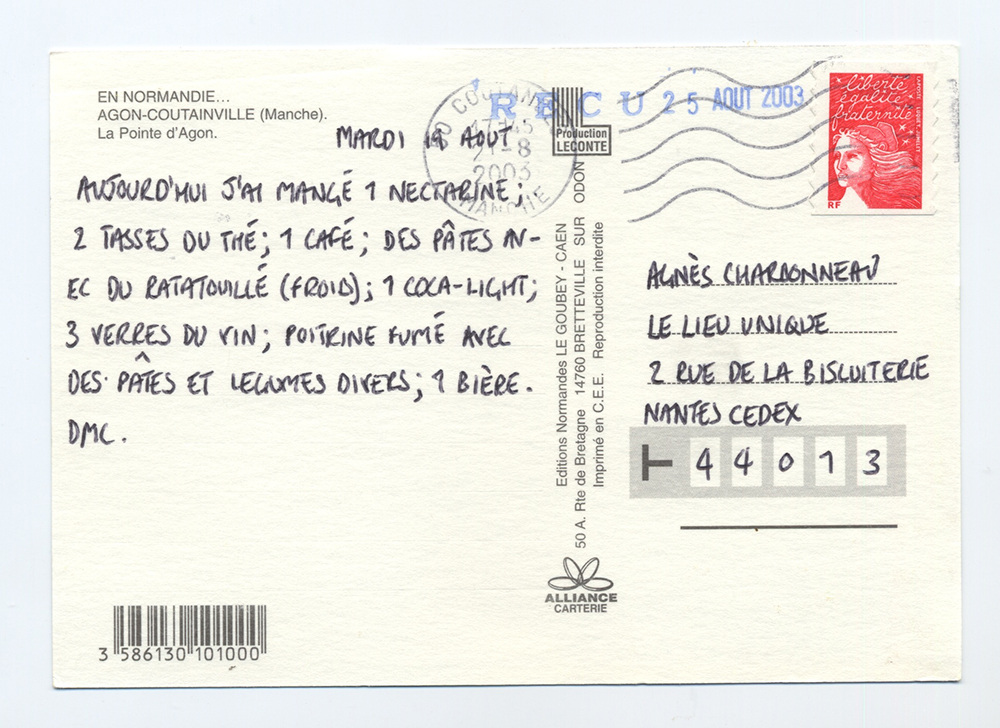 EN NORMANDIE...
AGON-COUTAINVILLE (Manche).
La Pointe d'Agon.
MARDI 19 AOUT
AUJOURD'HUI J'AI MANGÉ 1 NECTARINE;
2 TASSES DU THÉ; 1 CAFÉ; DES PÂTES AV-
EC DU RATATOUILLÉ (FROID); 1 COCA-LIGHT;
3 VERRES DU VIN; POITRINE FUMÉ AVEC
DES PÂTES ET LEGUMES DIVERS; 1 BIÈRE.
DMC.
3 586130 101000
RECU 25 AOUT 2003
50 COUTANCES
21-8
2003
MANCHE
Production
LECONTE
Editions Normandes LE GOUBEY - CAEN
50 A. Rte de Bretagne 14760 BRETTEVILLE SUR ODON
Imprimé en C.E.E. Reproduction interdite
ALLIANCE
CARTERIE
liberté
égalité
fraternité
RF
AGNÈS CHARBONNEAU
LE LIEU UNIQUE
2 RUE DE LA BISCUITERIE
NANTES CEDEX
44013